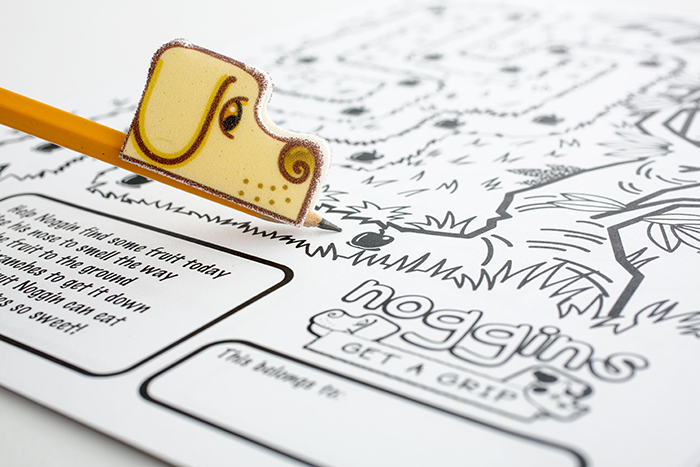 Help Noggin find some fruit today
his nose to smell the way
fruit to the ground
branches to get it down
Noggin can eat
so sweet!
noggins
GET A GRIP
This belongs to: